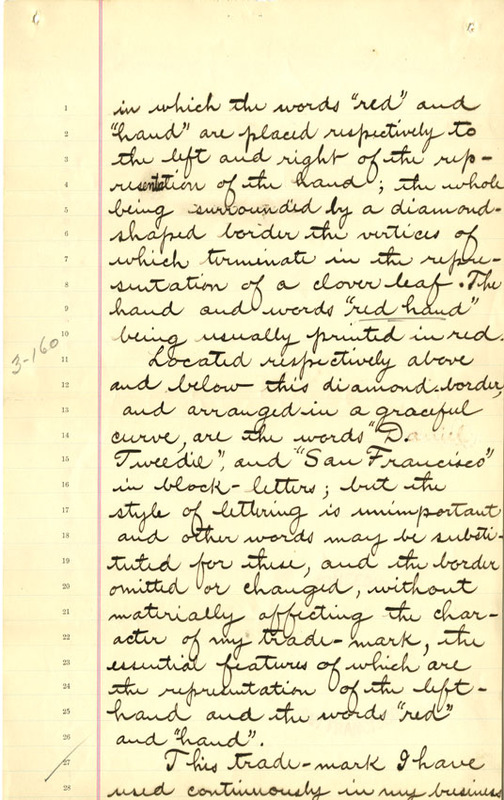 1 in which the words "red" and
2 "hand" are placed respectively to
3 the left and right of the rep-
4 resentation of the hand; the whole
5 being surrounded by a diamond-
6 shaped border the vertices of
7 which terminate in the repre-
8 sentation of a clover leaf. The
9 hand and words "red hand"
10 being usually printed in red.
3-160
11 Located respectively above
12 and below this diamond-border,
13 and arranged in a graceful
14 curve, are the words "D.
15 Tweedie", and "San Francisco"
16 in block-letters; but the
17 style of lettering is unimportant
18 and other words may be substi-
19 tuted for these, and the border
20 omitted or changed, without
21 materially affecting the char-
22 acter of my trade-mark, the
23 essential features of which are
24 the representation of the left-
25 hand and the words "red"
26 and "hand".
27 This trade-mark I have
28 used continuously in my business